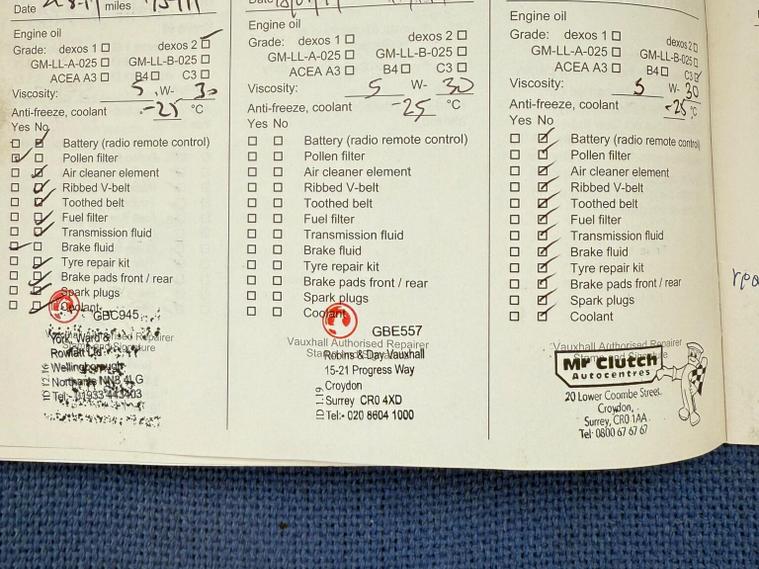 Date miles
Engine oil
Grade: dexos 1 dexos 2
GM-LL-A-025 GM-LL-B-025
ACEA A3 B4 C3
Viscosity: 5 W- 30
Anti-freeze, coolant -25 °C
Yes No
Battery (radio remote control)
Pollen filter
Air cleaner element
Ribbed V-belt
Toothed belt
Fuel filter
Transmission fluid
Brake fluid
Tyre repair kit
Brake pads front / rear
Spark plugs
Coolant
GBC945
Vauxhall Authorised Repairer
Stamp and Signature
York, Ward &
Rowlatt Ltd
Wellingborough
Northants NN8 4LG
Tel:- 01933
Date
Engine oil
Grade: dexos 1 dexos 2
GM-LL-A-025 GM-LL-B-025
ACEA A3 B4 C3
Viscosity: 5 W- 30
Anti-freeze, coolant -25 °C
Yes No
Battery (radio remote control)
Pollen filter
Air cleaner element
Ribbed V-belt
Toothed belt
Fuel filter
Transmission fluid
Brake fluid
Tyre repair kit
Brake pads front / rear
Spark plugs
Coolant
GBE557
Vauxhall Authorised Repairer
Stamp and Signature
Robins & Day Vauxhall
15-21 Progress Way
Croydon
Surrey CR0 4XD
Tel:- 020 8604 1000
Engine oil
Grade: dexos 1 dexos 2
GM-LL-A-025 GM-LL-B-025
ACEA A3 B4 C3
Viscosity: 5 W- 30
Anti-freeze, coolant -25 °C
Yes No
Battery (radio remote control)
Pollen filter
Air cleaner element
Ribbed V-belt
Toothed belt
Fuel filter
Transmission fluid
Brake fluid
Tyre repair kit
Brake pads front / rear
Spark plugs
Coolant
Vauxhall Authorised Repairer
Stamp and Signature
Mr Clutch
Autocentres
20 Lower Coombe Street,
Croydon,
Surrey, CR0 1AA
Tel: 0800 67 67 67